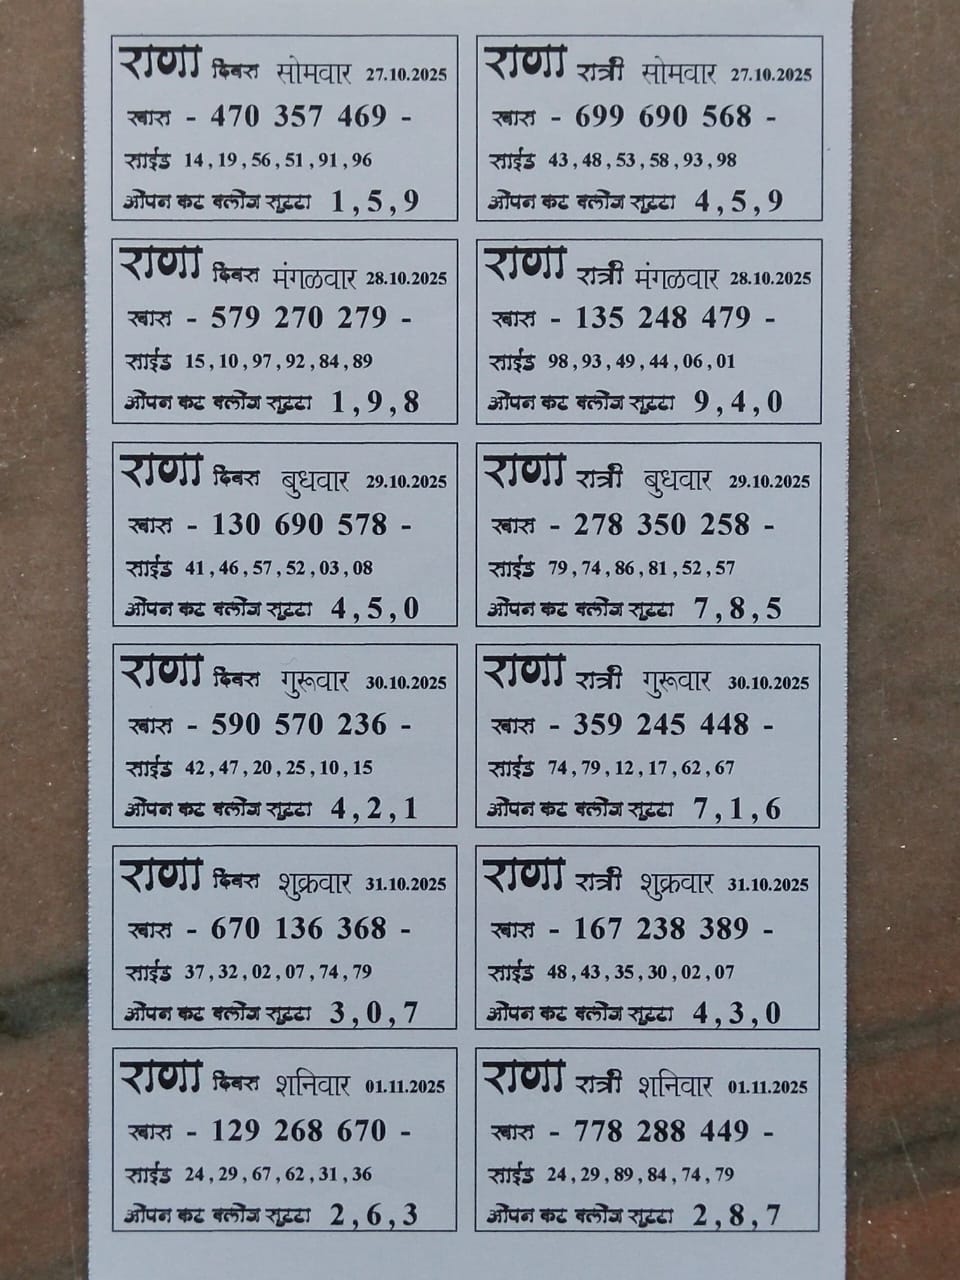 राणा दिवस सोमवार 27.10.2025
खास - 470 357 469 -
साईड 14 , 19 , 56 , 51 , 91 , 96
ओपन कट क्लोज सुट्टा 1 , 5 , 9
राणा रात्री सोमवार 27.10.2025
खास - 699 690 568 -
साईड 43 , 48 , 53 , 58 , 93 , 98
ओपन कट क्लोज सुट्टा 4 , 5 , 9
राणा दिवस मंगळवार 28.10.2025
खास - 579 270 279 -
साईड 15 , 10 , 97 , 92 , 84 , 89
ओपन कट क्लोज सुट्टा 1 , 9 , 8
राणा रात्री मंगळवार 28.10.2025
खास - 135 248 479 -
साईड 98 , 93 , 49 , 44 , 06 , 01
ओपन कट क्लोज सुट्टा 9 , 4 , 0
राणा दिवस बुधवार 29.10.2025
खास - 130 690 578 -
साईड 41 , 46 , 57 , 52 , 03 , 08
ओपन कट क्लोज सुट्टा 4 , 5 , 0
राणा रात्री बुधवार 29.10.2025
खास - 278 350 258 -
साईड 79 , 74 , 86 , 81 , 52 , 57
ओपन कट क्लोज सुट्टा 7 , 8 , 5
राणा दिवस गुरूवार 30.10.2025
खास - 590 570 236 -
साईड 42 , 47 , 20 , 25 , 10 , 15
ओपन कट क्लोज सुट्टा 4 , 2 , 1
राणा रात्री गुरूवार 30.10.2025
खास - 359 245 448 -
साईड 74 , 79 , 12 , 17 , 62 , 67
ओपन कट क्लोज सुट्टा 7 , 1 , 6
राणा दिवस शुक्रवार 31.10.2025
खास - 670 136 368 -
साईड 37 , 32 , 02 , 07 , 74 , 79
ओपन कट क्लोज सुट्टा 3 , 0 , 7
राणा रात्री शुक्रवार 31.10.2025
खास - 167 238 389 -
साईड 48 , 43 , 35 , 30 , 02 , 07
ओपन कट क्लोज सुट्टा 4 , 3 , 0
राणा दिवस शनिवार 01.11.2025
खास - 129 268 670 -
साईड 24 , 29 , 67 , 62 , 31 , 36
ओपन कट क्लोज सुट्टा 2 , 6 , 3
राणा रात्री शनिवार 01.11.2025
खास - 778 288 449 -
साईड 24 , 29 , 89 , 84 , 74 , 79
ओपन कट क्लोज सुट्टा 2 , 8 , 7